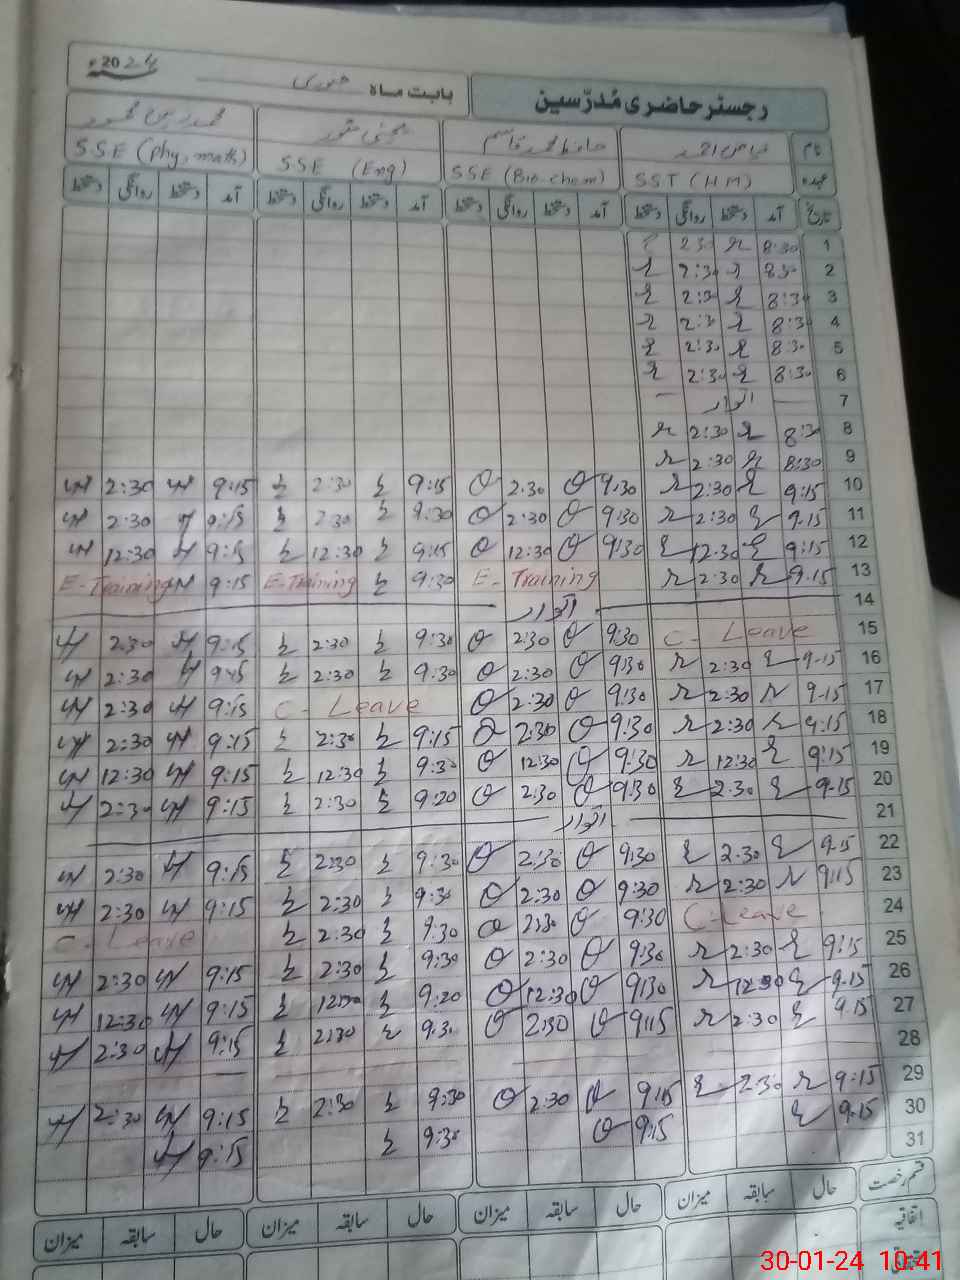 2024ء
بابت ماہ جنوری
رجسٹر حاضری مُدرّسین
نام فیاض احمد حافظ محمد قاسم
عہدہ SST (H.M) SSE (Bio.chem) SSE (Eng) SSE (Phy, math)
تاریخ آمد دستخط روانگی دستخط آمد دستخط روانگی دستخط آمد دستخط روانگی دستخط آمد دستخط روانگی دستخط
1 8:30 2:30
2 8:30 2:30
3 8:30 2:30
4 8:30 2:30
5 8:30 2:30
6 8:30 2:30
7 اتوار
8 8:30 2:30
9 8:30 2:30
10 9:15 2:30 9:30 2:30 9:15 2:30 9:15 2:30
11 9-15 2:30 9:30 2:30 9:30 2:30 9:15 2:30
12 9:15 12:30 9:30 12:30 9:15 12:30 9:15 12:30
13 9-15 2:30 E-Training 9:30 E-Training 9:15 E-Training
14 اتوار
15 C-Leave 9:30 2:30 9:30 2:30 9:15 2:30
16 9-15 2:30 9:30 2:30 9:30 2:30 9:45 2:30
17 9-15 2:30 9:30 2:30 C-Leave 9:15 2:30
18 9:15 2:30 9:30 2:30 9:15 2:30 9:15 2:30
19 9:15 12:30 9:30 12:30 9:30 12:30 9:15 12:30
20 9-15 2:30 9:30 2:30 9:20 2:30 9:15 2:30
21 اتوار
22 9-15 2:30 9:30 2:30 9:30 2:30 9:15 2:30
23 9:15 2:30 9:30 2:30 9:30 2:30 9:15 2:30
24 C-Leave 9:30 2:30 9:30 2:30 C-Leave
25 9:15 2:30 9:30 2:30 9:30 2:30 9:15 2:30
26 9-15 12:30 9:30 12:30 9:20 12:30 9:15 12:30
27 9:15 2:30 9:15 2:30 9:30 2:30 9:15 2:30
28
29 9:15 2:30 9:15 2:30 9:30 2:30 9:15 2:30
30 9-15 9:15 9:30 9:15
31
قسم رخصت حال سابقہ میزان حال سابقہ میزان حال سابقہ میزان حال سابقہ میزان
اتفاقیہ
30-01-24 10:41